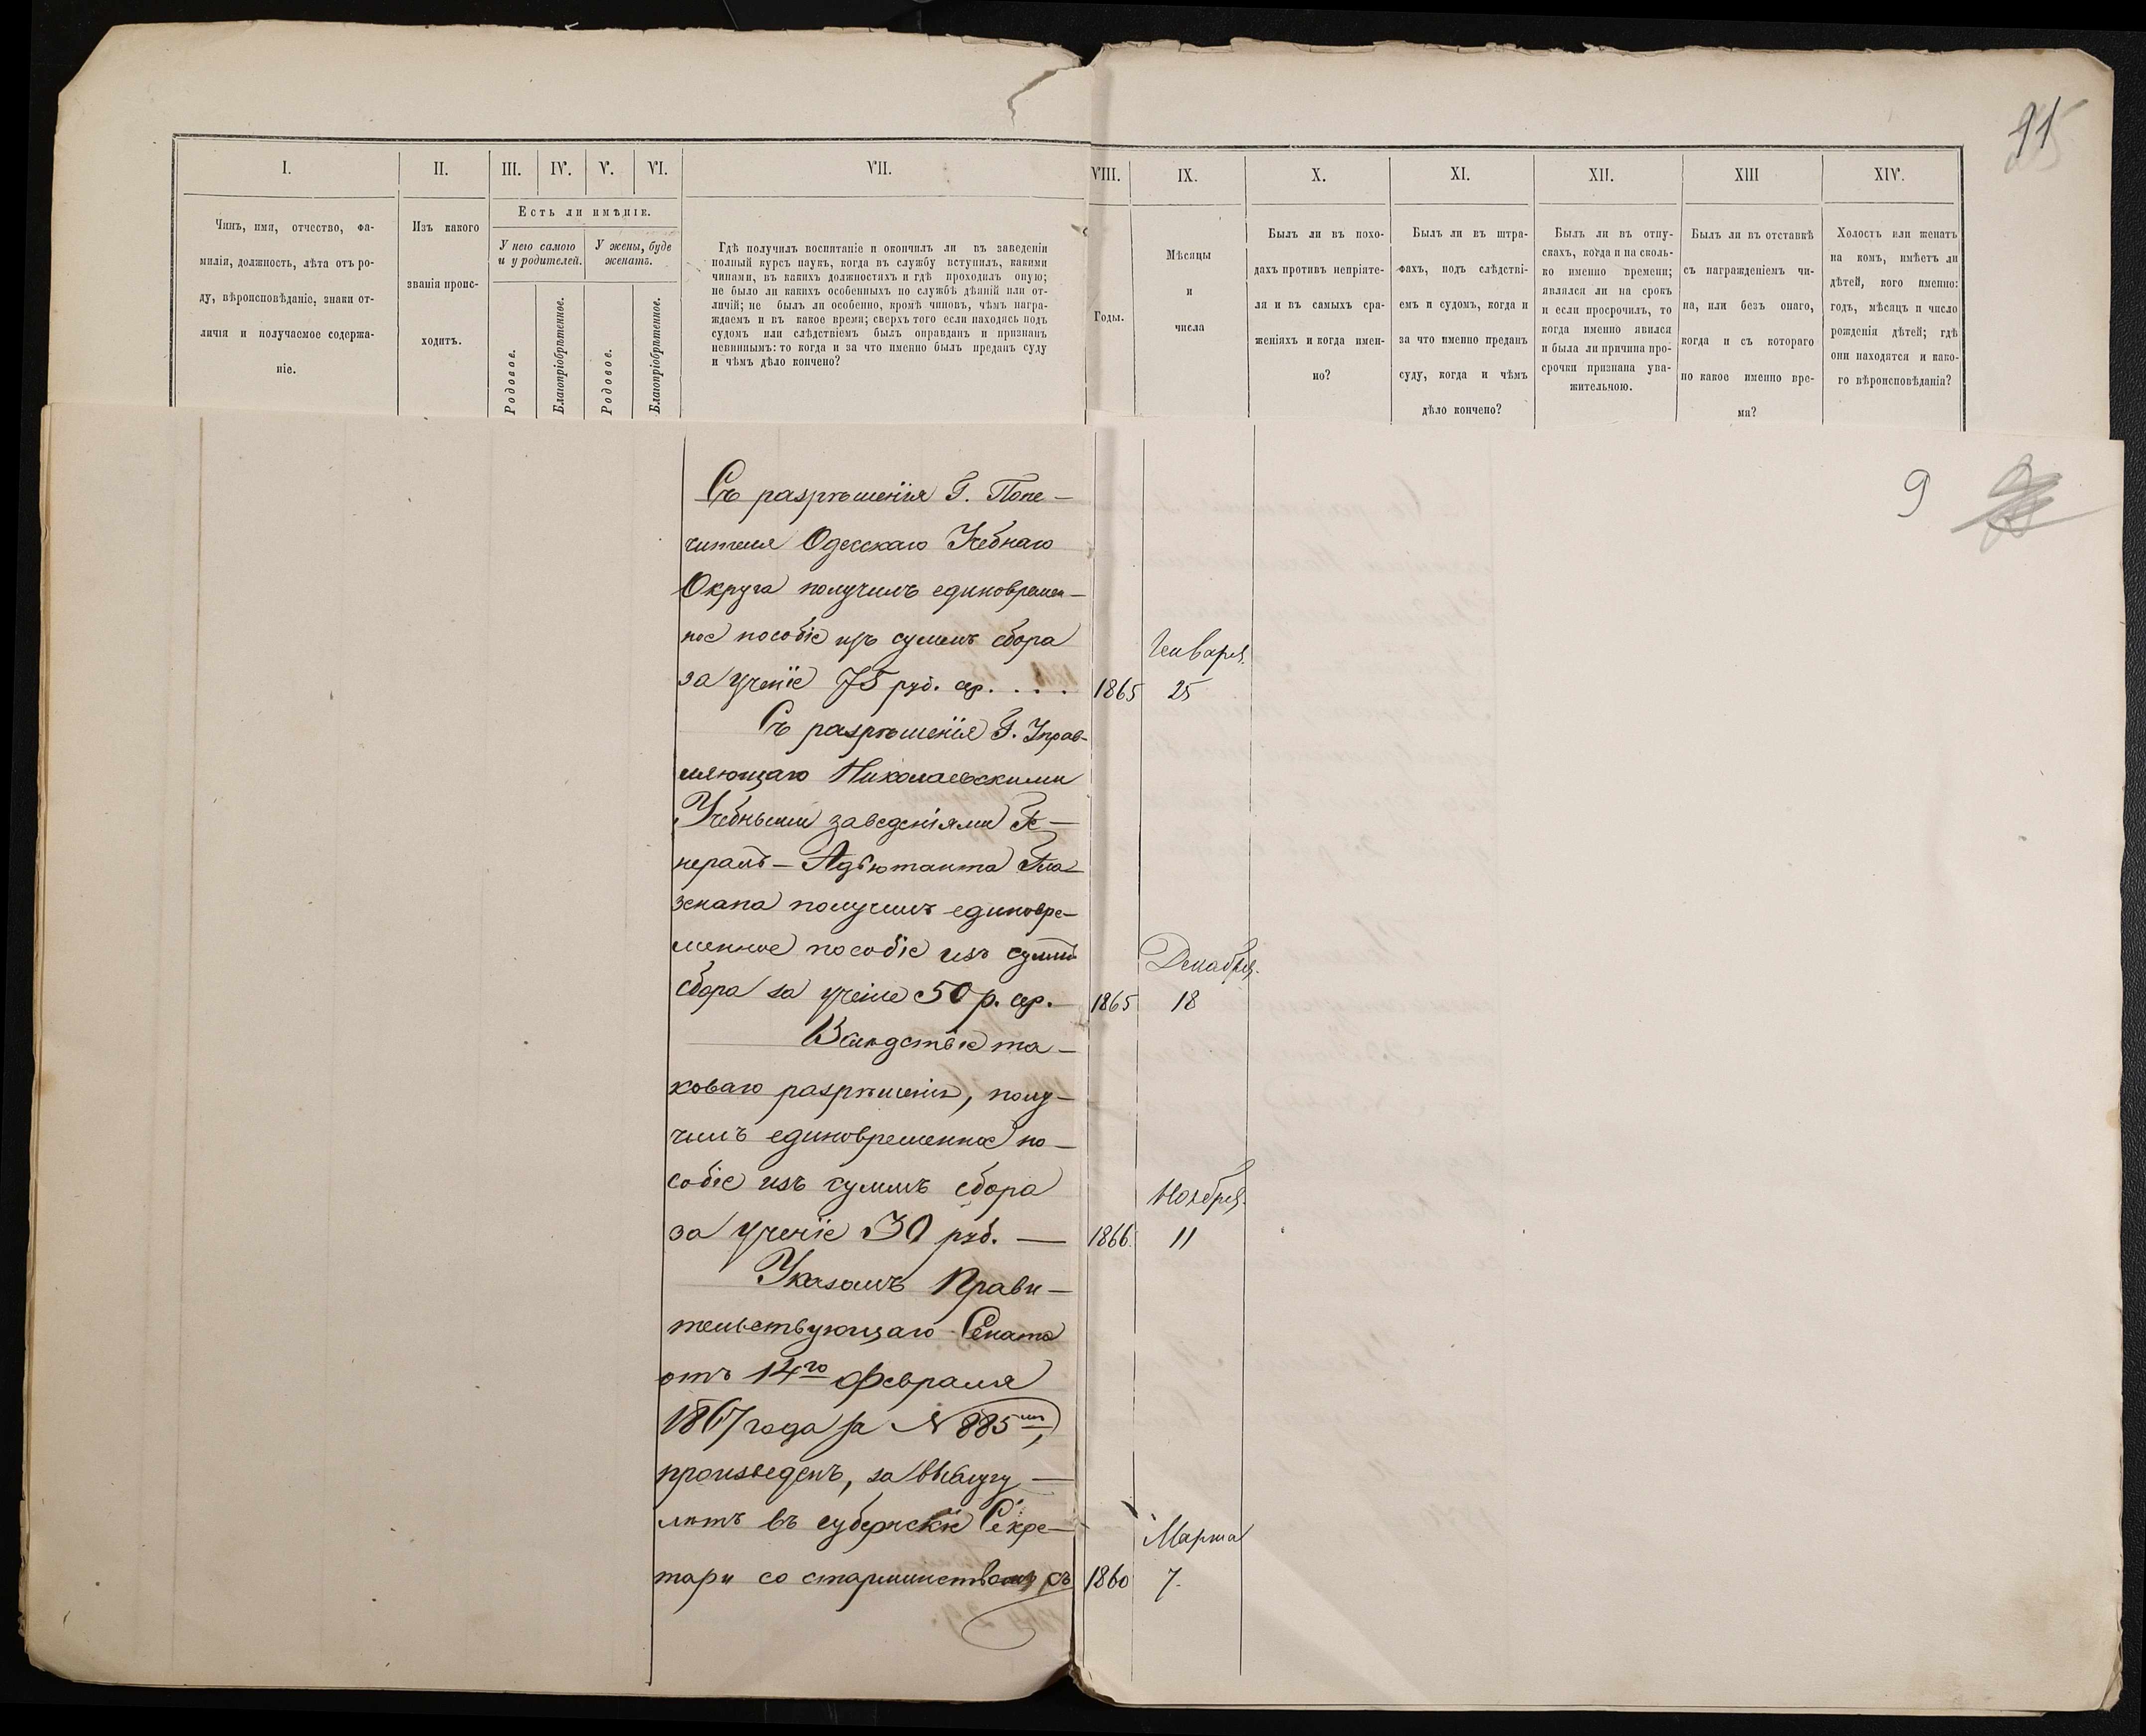 91
I.
II.
III.
IV.
V.
VI.
VII.
VIII.
IX.
X.
XI.
XII.
XIII
XIV.
Чинъ, имя, отчество, фа-
милія, должность, лѣта отъ ро-
ду, вѣроисповѣданіе, знаки от-
личія и получаемое содержа-
ніе.
Изъ какого
званія проис-
ходитъ.
Есть ли имѣніе.
У него самого
и у родителей.
У жены, буде
женатъ.
Родовое.
Благопріобрѣтенное.
Родовое.
Благопріобрѣтенное.
Гдѣ получилъ воспитаніе и окончилъ ли въ заведеніи
полный курсъ наукъ, когда въ службу вступилъ, какими
чинами, въ какихъ должностяхъ и гдѣ проходилъ оную;
не было ли какихъ особенныхъ по службѣ дѣяній или от-
личій; не былъ ли особенно, кромѣ чиновъ, чѣмъ награ-
ждаемъ и въ какое время; сверхъ того если находясь подъ
судомъ или слѣдствіемъ былъ оправданъ и признанъ
невиннымъ: то когда и за что именно былъ преданъ суду
и чѣмъ дѣло кончено?
Годы.
Мѣсяцы
и
числа
Былъ ли въ похо-
дахъ противъ непріяте-
ля и въ самыхъ сра-
женіяхъ и когда имен-
но?
Былъ ли въ штра-
фахъ, подъ слѣдстві-
емъ и судомъ, когда и
за что именно преданъ
суду, когда и чѣмъ
дѣло кончено?
Былъ ли въ отпу-
скахъ, когда и на сколь-
ко именно времени;
являлся ли на срокъ
и если просрочилъ, то
когда именно явился
и была ли причина про-
срочки признана ува-
жительною.
Былъ ли въ отставкѣ
съ награжденіемъ чи-
на, или безъ онаго,
когда и съ котораго
по какое именно вре-
мя?
Холостъ или женатъ
на комъ, имѣетъ ли
дѣтей, кого именно:
годъ, мѣсяцъ и число
рожденія дѣтей; гдѣ
они находятся и како-
го вѣроисповѣданія?
9
Съ разрѣшенія Г. Попе-
чителя Одесскаго Учебнаго
Округа получилъ единовремен-
ное пособіе изъ суммъ сбора
за ученіе 75 руб. сер. . . . 1865 Генваря 25
Съ разрѣшенія Г. Управ-
ляющаго Николаевскими
Учебными заведеніями Ге-
нералъ-Адъютанта Гла-
зенапа получилъ единовре-
менное пособіе изъ суммъ
сбора за ученіе 50 р. сер. — 1865 Декабря. 18
Вслѣдствіе та-
коваго разрѣшенія, полу-
чилъ единовременное по-
собіе изъ суммъ сбора
за ученіе 30 руб. — 1866. Ноября. 11
Указомъ Прави-
тельствующаго Сената
отъ 14го Февраля
1867 года за № 885мъ,
произведенъ, за выслугу
лѣтъ въ Губернскіе Секре-
тари со старшинствомъ съ 1860 Марта 7.